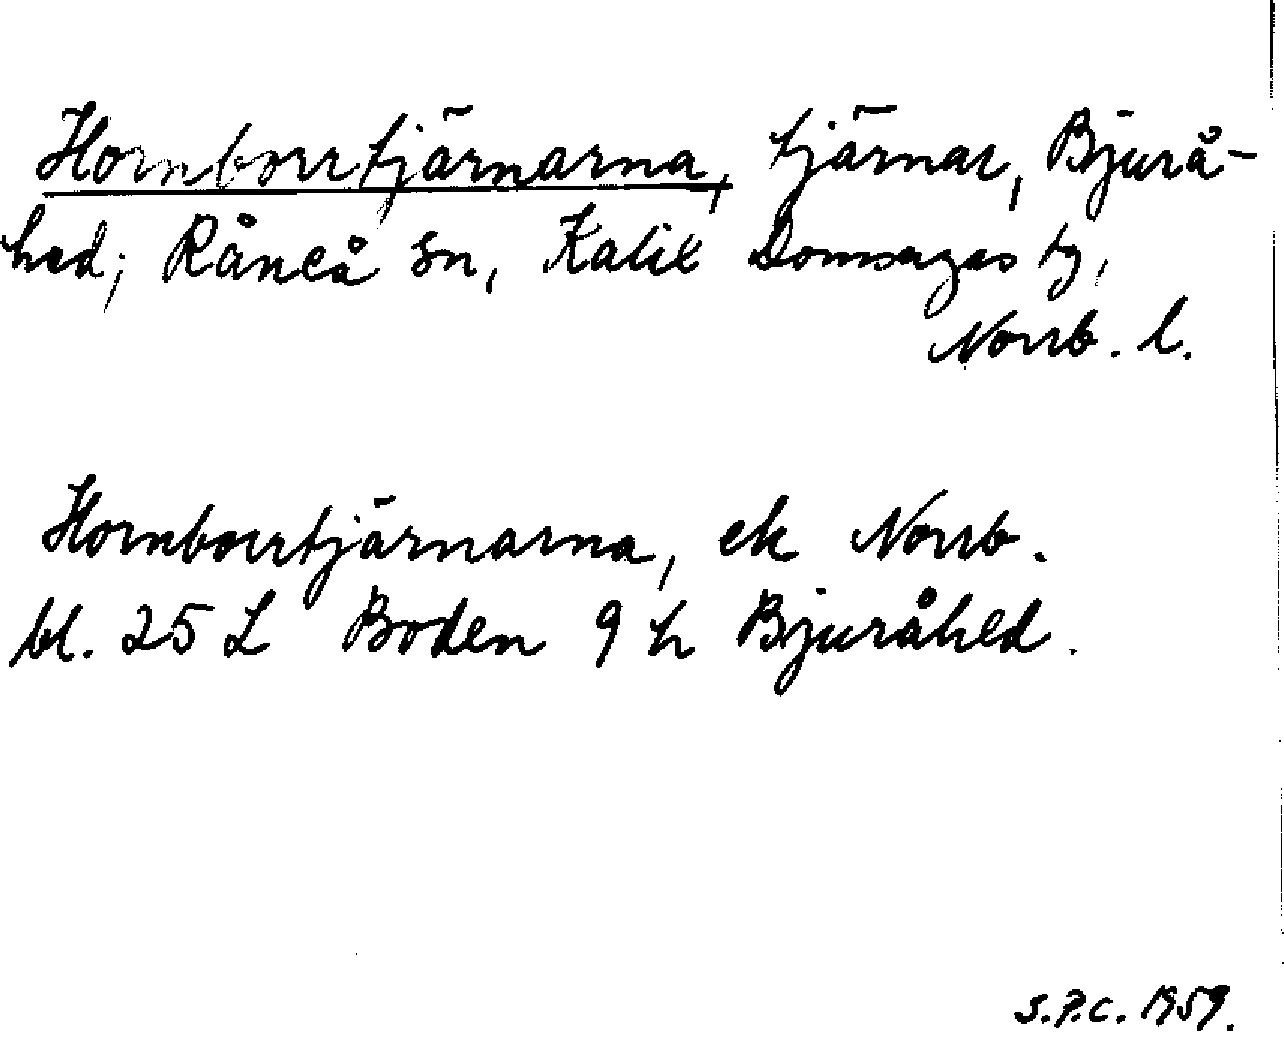 Hornborrtjärnarna, tjärnar, Bjurå-
hed; Råneå sn, Kalix Domsagas tg,
Norrb. l.
Hornborrtjärnarna, ek Norrb.
bl. 25 L Boden 9 h Bjuråhed.
S.P.C. 1959.